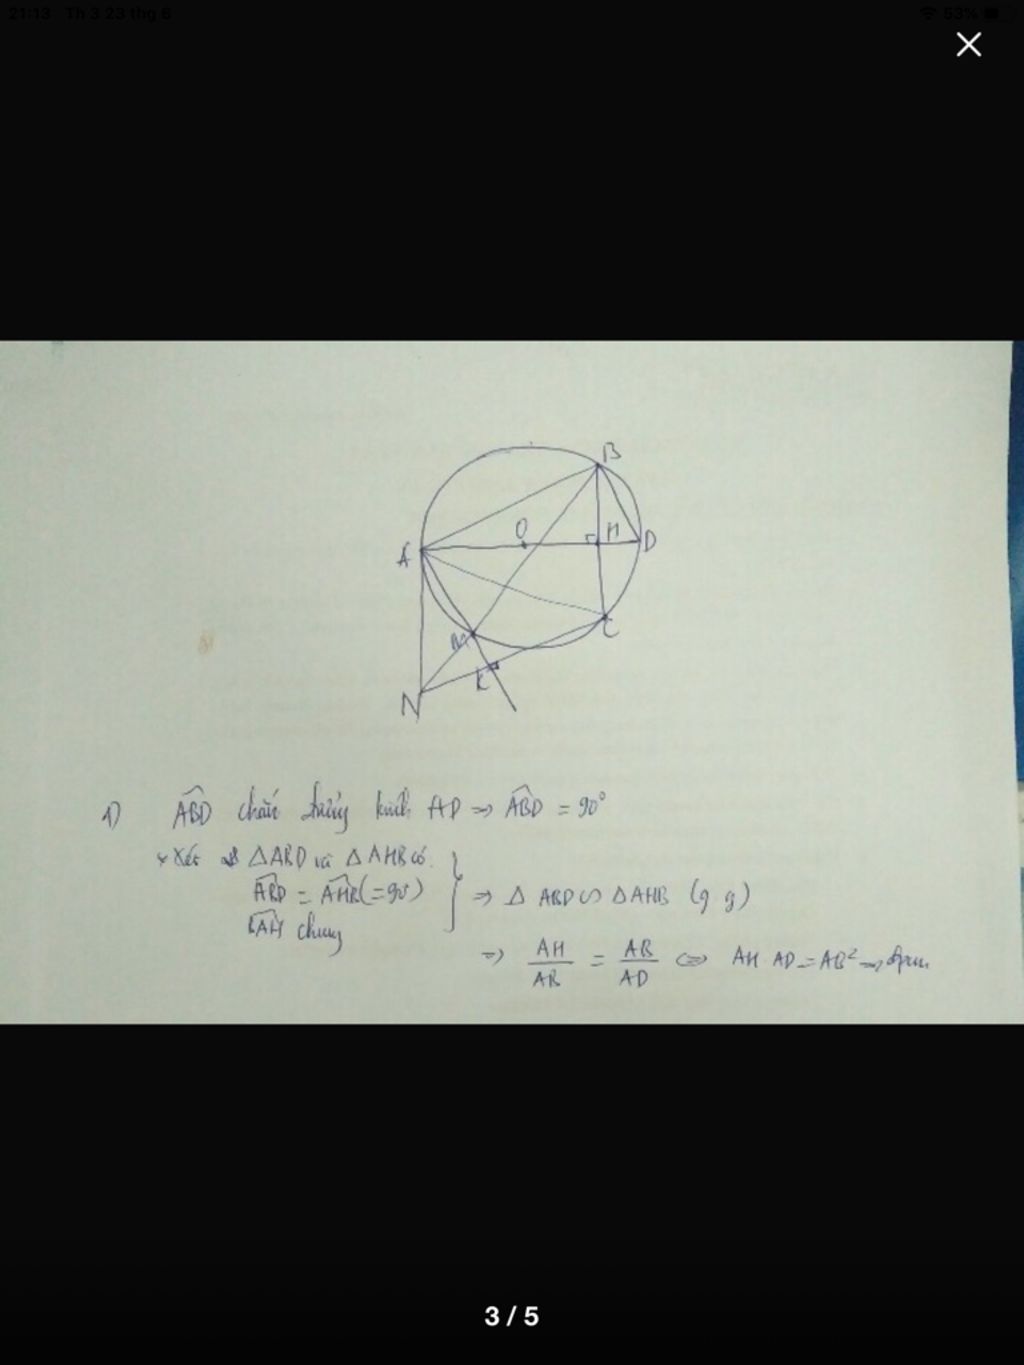 21:13 Th 3 23 thg 6
53%
B
O
H
D
A
M
C
K
N
1) ABD chắn đường kính AD => ABD = 90°
* Xét ΔABD và ΔAHB có
ABD = AHB (= 90°)
=> Δ ABD ∽ ΔAHB (g g)
BAH chung
=> AH/AB = AB/AD <=> AH.AD = AB² => đpcm
3 / 5